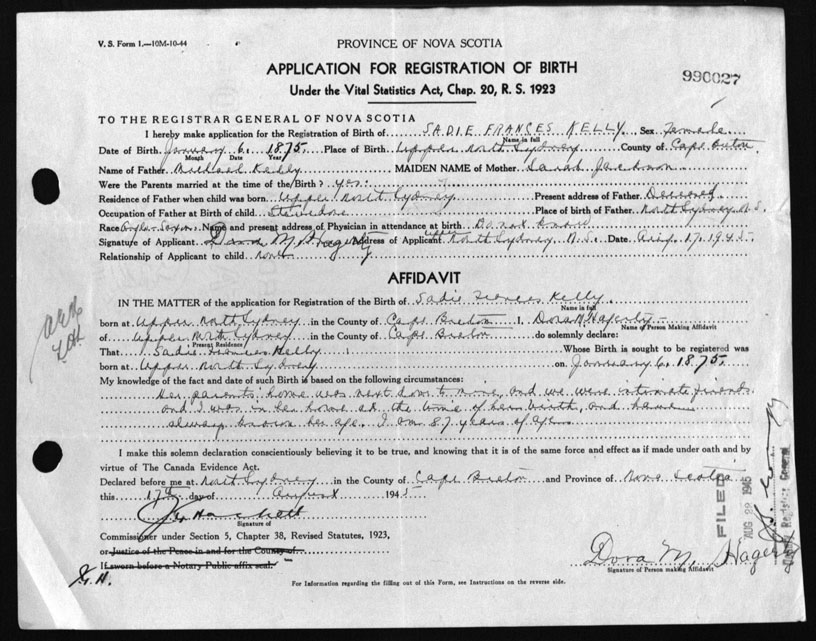 V. S. Form 1.—10M-10-44
PROVINCE OF NOVA SCOTIA
APPLICATION FOR REGISTRATION OF BIRTH
990027
Under the Vital Statistics Act, Chap. 20, R. S. 1923
TO THE REGISTRAR GENERAL OF NOVA SCOTIA
I hereby make application for the Registration of Birth of SADIE FRANCES KELLY Sex Female
Name in full
Date of Birth January 6, 1875 Place of Birth Upper North Sydney County of Cape Breton
Month Date Year
Name of Father Michael Kelly MAIDEN NAME of Mother Sarah Jackson
Were the Parents married at the time of the Birth? yes
Residence of Father when child was born Upper North Sydney Present address of Father Deceased
Occupation of Father at Birth of child Stevedore Place of birth of Father North Sydney N.S.
Race Anglo-Saxon Name and present address of Physician in attendance at birth Do not know
Signature of Applicant Dora M. Hagerty Address of Applicant Upper North Sydney N.S. Date Aug. 17, 1945
Relationship of Applicant to child none
AFFIDAVIT
IN THE MATTER of the application for Registration of the Birth of Sadie Frances Kelly
Name in full
born at Upper North Sydney in the County of Cape Breton I, Dora M. Hagerty
Name of Person Making Affidavit
of Upper North Sydney in the County of Cape Breton do solemnly declare:
Present Residence
That Sadie Frances Kelly Whose Birth is sought to be registered was
born at Upper North Sydney on January 6, 1875
My knowledge of the fact and date of such Birth is based on the following circumstances:
Her parents home was next door to mine, and we were intimate friends
and I was in her home at the time of her birth, and have
always known her age. I am 87 years of age
I make this solemn declaration conscientiously believing it to be true, and knowing that it is of the same force and effect as if made under oath and by
virtue of The Canada Evidence Act.
Declared before me at North Sydney in the County of Cape Breton and Province of Nova Scotia
this 17th day of August 1945
Signature of
Commissioner under Section 5, Chapter 38, Revised Statutes, 1923,
or Justice of the Peace in and for the County of
If sworn before a Notary Public affix seal.
Dora M. Hagerty
Signature of Person making Affidavit
For Information regarding the filling out of this Form, see Instructions on the reverse side.
FILED
AUG 29 1945
Registrar General